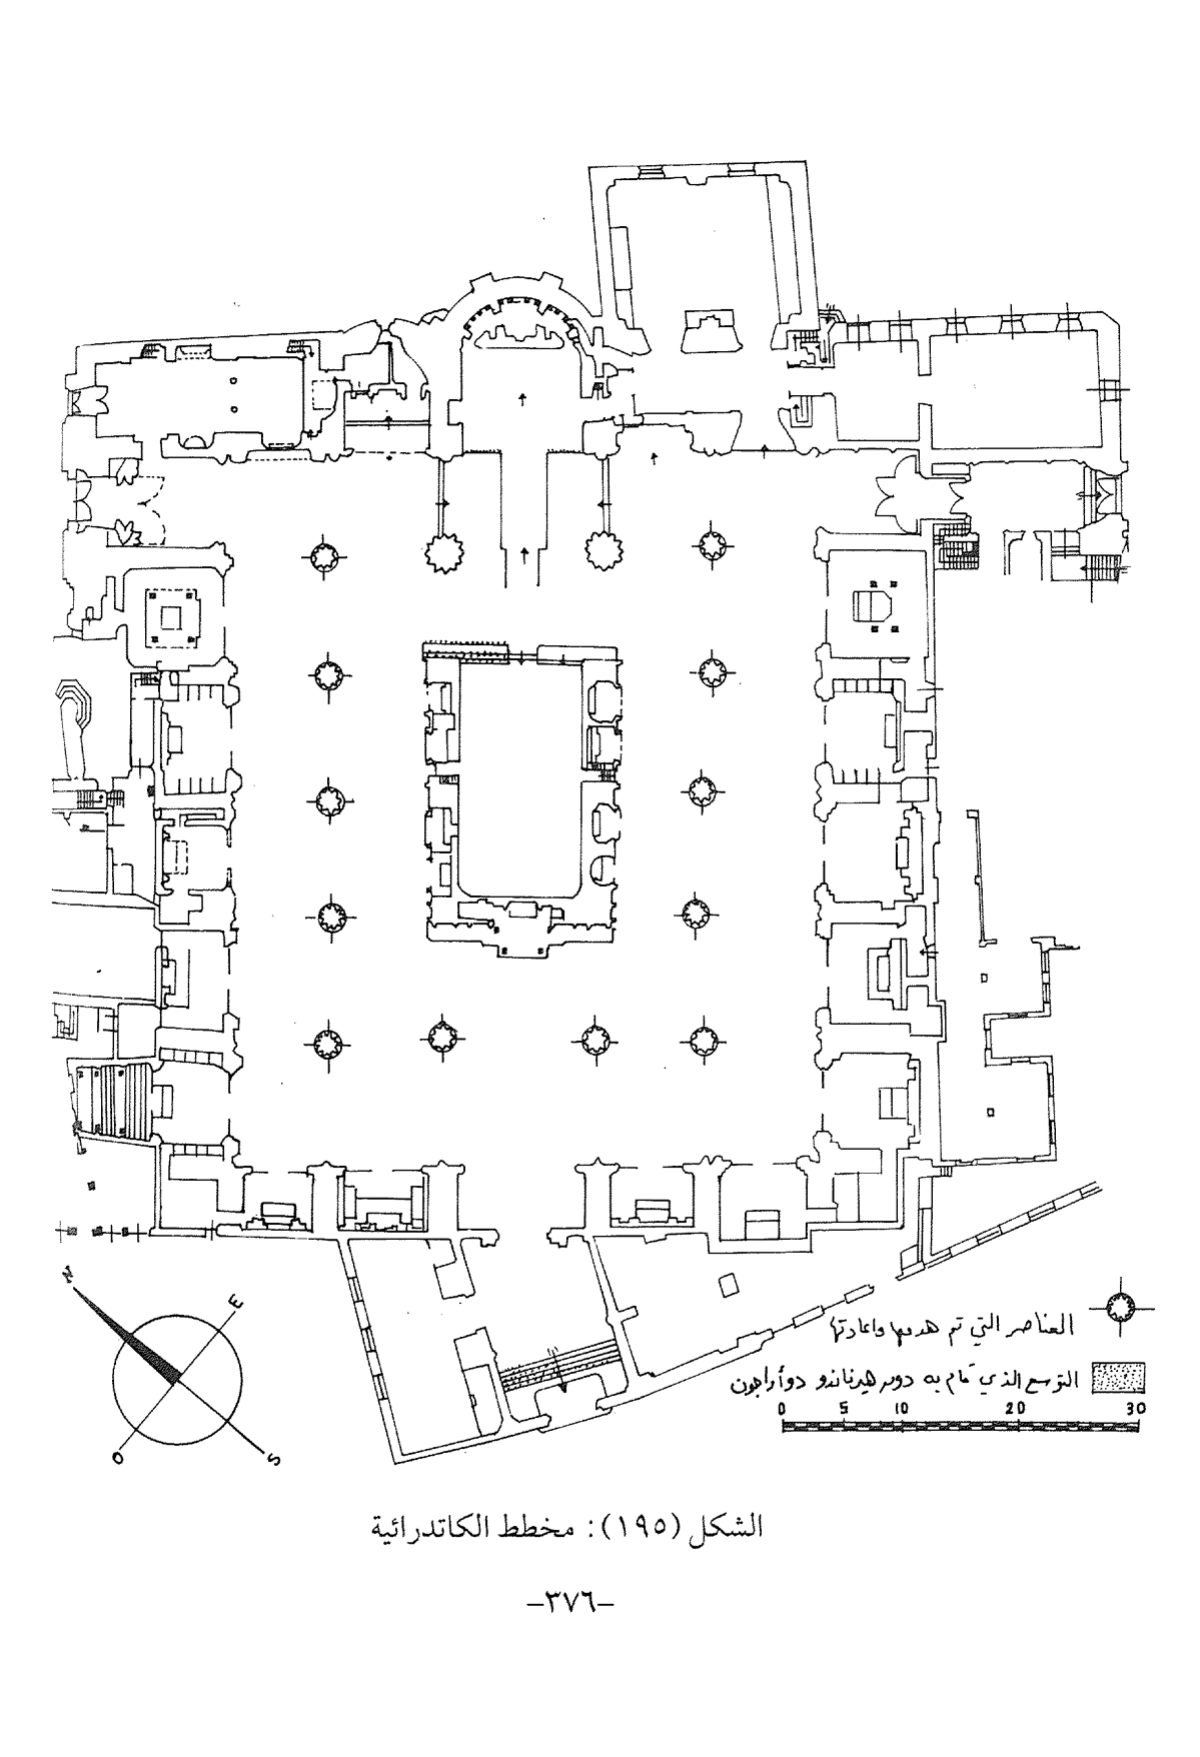 N
E
S
O
العناصر التي تم هدمها واعادتها
التوسع الذي قام به دون هيرناندو دو أراجون
0 5 10 20 30
الشكل (١٩٥): مخطط الكاتدرائية
–٣٧٦–